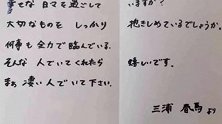 幸せな 日々を 過ごして
大切なものを しっかり
何事も 全力で 臨んでいる.
そんな 人でいてくれたら
まぁ 凄い人で いて下さい.
ますか?
抱きしめているでしょうか.
嬉しいです.
三浦 春馬 より